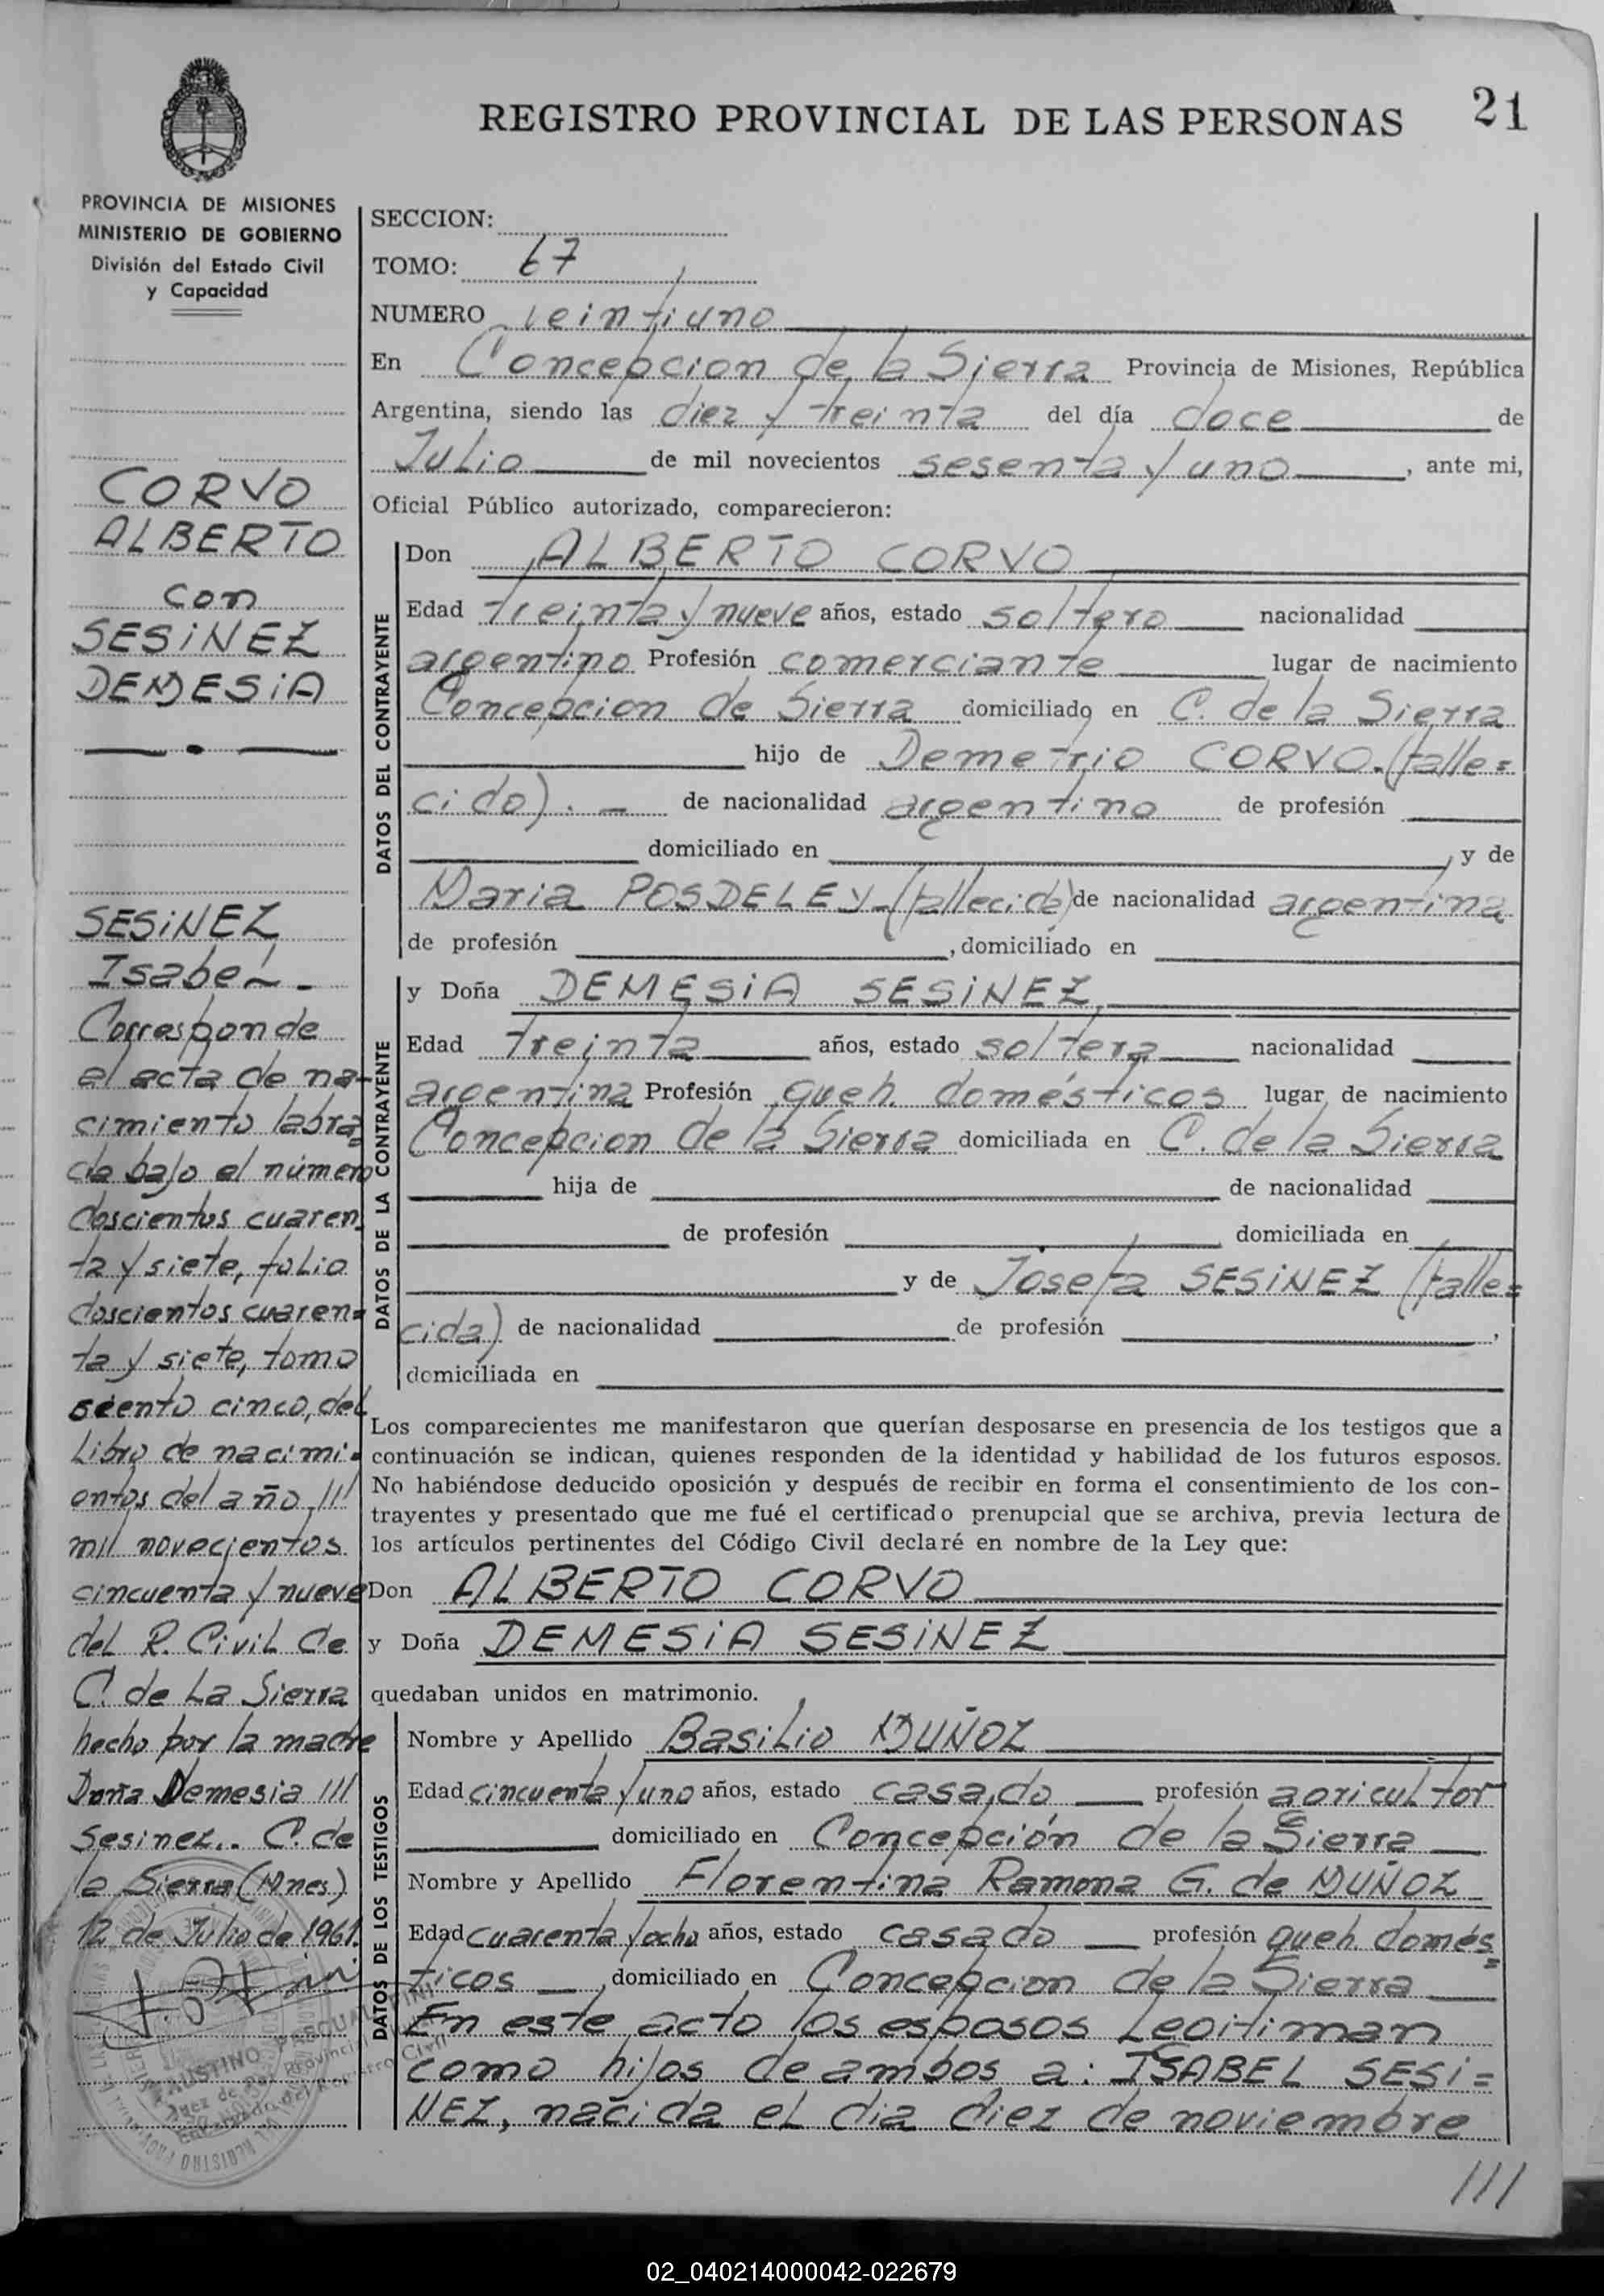 REGISTRO PROVINCIAL DE LAS PERSONAS
21
PROVINCIA DE MISIONES
MINISTERIO DE GOBIERNO
División del Estado Civil
y Capacidad
CORVO
ALBERTO
con
SESiNEZ
DEMESiA
SESiNEZ
Isabel.-
Corresponde
al acta de na-
cimiento labra
da bajo el número
doscientos cuaren
ta y siete, folio
doscientos cuaren=
ta y siete, tomo
ciento cinco, del
Libro de nacimi=
entos del año ///
mil novecientos
cincuenta y nueve
del R. Civil de
C. de La Sierra
hecho por la madre
Doña Demesia ///
Sesinez.. C. de
la Sierra (Mnes)
12 de Julio de 1961.
SECCION:
TOMO: 67
NUMERO veintiuno
En Concepcion de la Sierra Provincia de Misiones, República
Argentina, siendo las diez y treinta del día doce de
Julio de mil novecientos sesenta y uno, ante mi,
Oficial Público autorizado, comparecieron:
DATOS DEL CONTRAYENTE
Don ALBERTO CORVO
Edad treinta y nueve años, estado soltero nacionalidad
argentino Profesión comerciante lugar de nacimiento
Concepcion de Sierra domiciliado en C. de la Sierra
hijo de Demetrio CORVO.(falle=
cido).- de nacionalidad argentino de profesión
domiciliado en , y de
Maria POSDELEY-(fallecida) de nacionalidad argentina
de profesión , domiciliado en
DATOS DE LA CONTRAYENTE
y Doña DEMESiA SESiNEZ
Edad treinta años, estado soltera nacionalidad
argentina Profesión queh. domésticos lugar de nacimiento
Concepcion de la Sierra domiciliada en C. de la Sierra
hija de de nacionalidad
de profesión domiciliada en
y de Josefa SESiNEZ (falle=
cida) de nacionalidad de profesión ,
domiciliada en
Los comparecientes me manifestaron que querían desposarse en presencia de los testigos que a
continuación se indican, quienes responden de la identidad y habilidad de los futuros esposos.
No habiéndose deducido oposición y después de recibir en forma el consentimiento de los con-
trayentes y presentado que me fué el certificado prenupcial que se archiva, previa lectura de
los artículos pertinentes del Código Civil declaré en nombre de la Ley que:
Don ALBERTO CORVO
y Doña DEMESiA SESiNEZ
quedaban unidos en matrimonio.
DATOS DE LOS TESTIGOS
Nombre y Apellido Basilio MUÑOZ
Edad cincuenta y uno años, estado casado profesión agricultor
domiciliado en Concepción de la Sierra
Nombre y Apellido Florentina Ramona G. de MUÑOZ
Edad cuarenta y ocho años, estado casado profesión queh. domés=
ticos domiciliado en Concepcion de la Sierra
En este acto los esposos Legitiman
como hijos de ambos a: ISABEL SESi=
NEZ, nacida el dia diez de noviembre
///
FAUSTINO PASCUAL
Juez de Paz Provincial
Encargado del Registro Civil
02_040214000042-022679